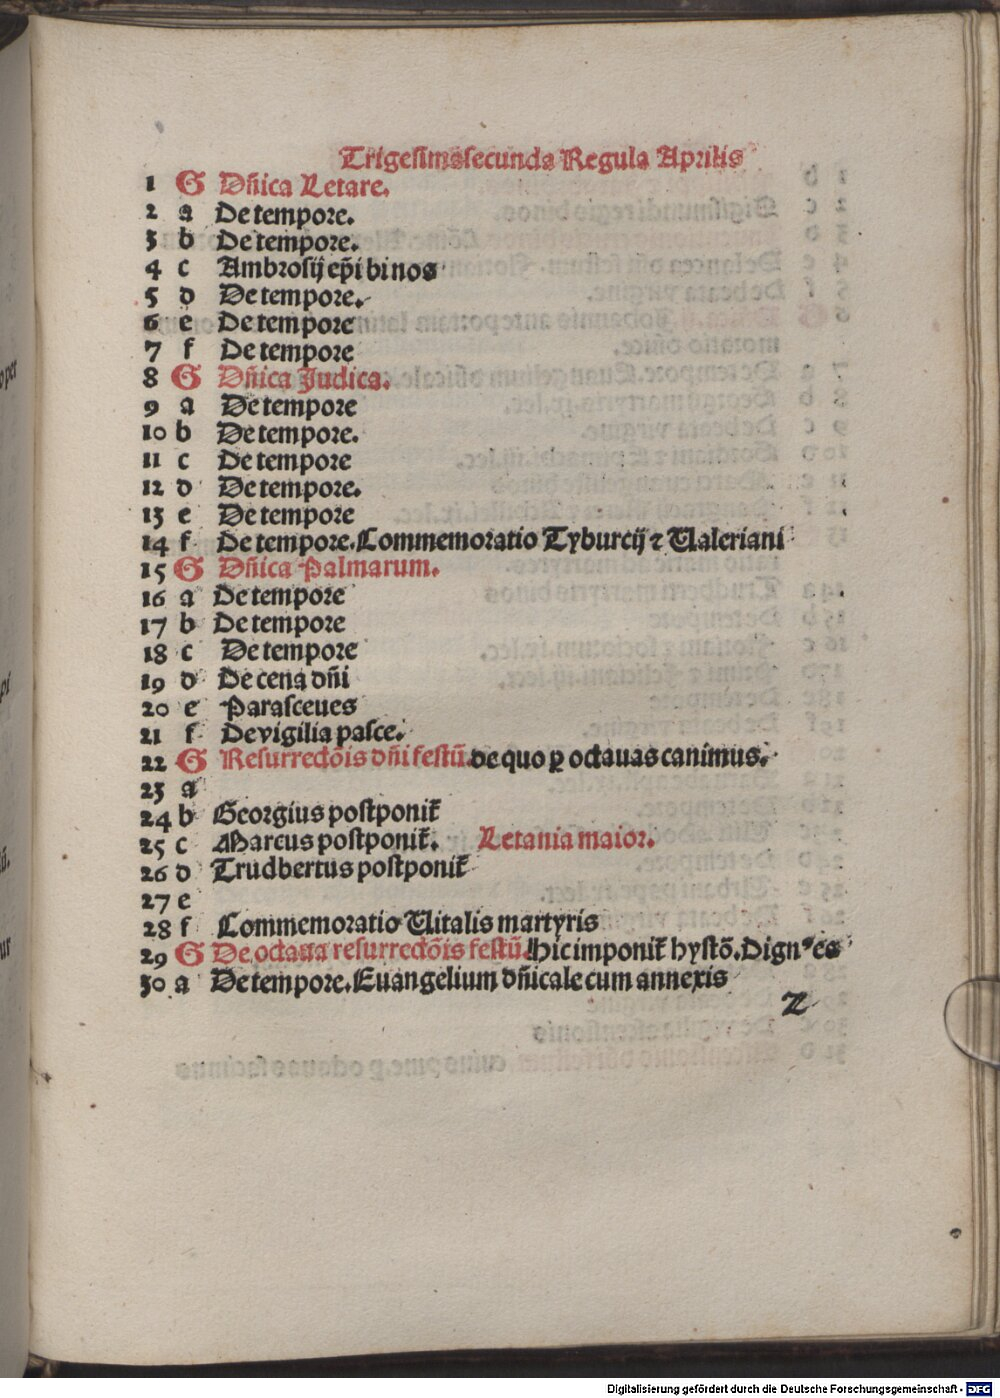 Trigesimasecunda Regula Aprilis
1 G Dñica Letare.
2 a De tempore.
3 b De tempore.
4 c Ambrosij ep̃i binos
5 d De tempore.
6 e De tempore
7 f De tempore
8 G Dñica Judica.
9 a De tempore
10 b De tempore.
11 c De tempore
12 d De tempore.
13 e De tempore
14 f De tempore. Commemoratio Tyburcij ⁊ Ualeriani
15 G Dñica Palmarum.
16 a De tempore
17 b De tempore
18 c De tempore
19 d De cena dñi
20 e Parasceues
21 f De vigilia pasce.
22 G Resurrectõis dñi festũ. de quo ꝑ octauas canimus.
23 a
24 b Georgius postponit̃
25 c Marcus postponit̃. Letania maior.
26 d Trudbertus postponit̃
27 e
28 f Commemoratio Uitalis martyris
29 G De octaua resurrectõis festũ. Hic imponit̃ hystõ. Dignꝰ es
30 a De tempore. Euangelium dñicale cum annexis
z
Digitalisierung gefördert durch die Deutsche Forschungsgemeinschaft - DFG